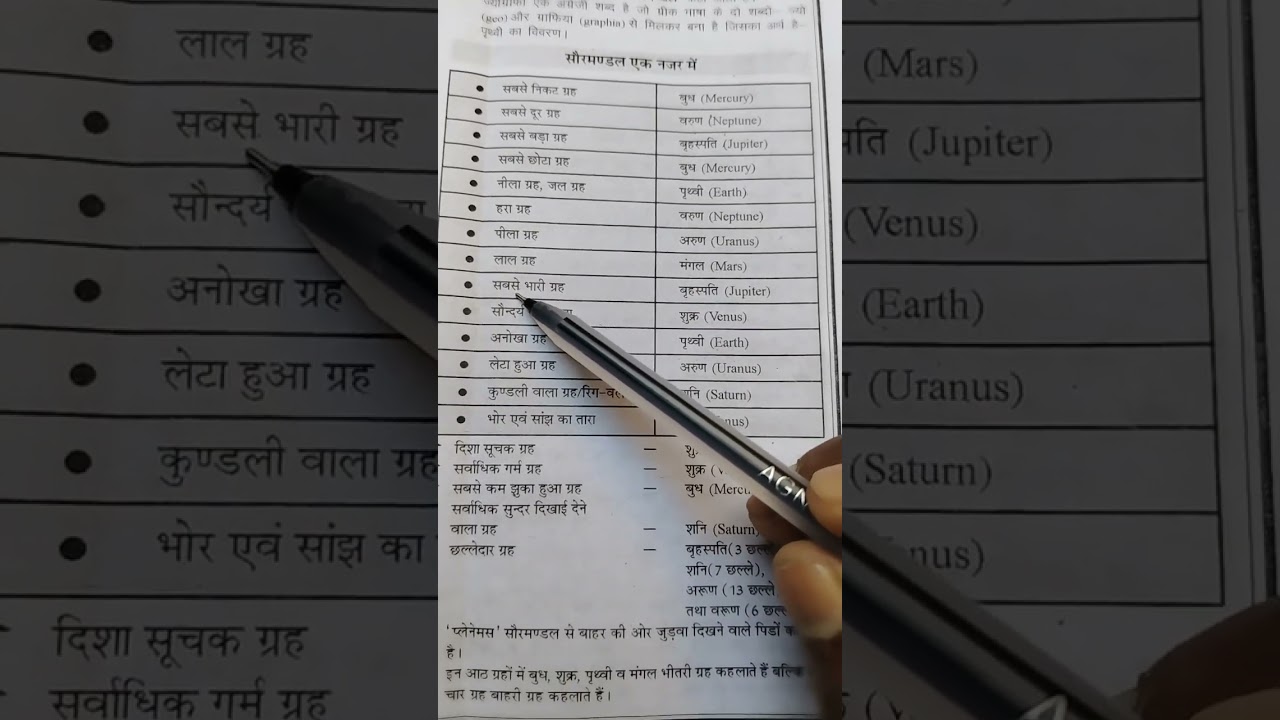 ज्योग्राफी एक अंग्रेजी शब्द है जो ग्रीक भाषा के दो शब्दों– ज्यो
(geo) और ग्राफिया (graphia) से मिलकर बना है जिसका अर्थ है–
पृथ्वी का विवरण।
सौरमण्डल एक नजर में
• सबसे निकट ग्रह बुध (Mercury)
• सबसे दूर ग्रह वरुण (Neptune)
• सबसे बड़ा ग्रह बृहस्पति (Jupiter)
• सबसे छोटा ग्रह बुध (Mercury)
• नीला ग्रह, जल ग्रह पृथ्वी (Earth)
• हरा ग्रह वरुण (Neptune)
• पीला ग्रह अरुण (Uranus)
• लाल ग्रह मंगल (Mars)
• सबसे भारी ग्रह बृहस्पति (Jupiter)
• सौन्दर्य शुक्र (Venus)
• अनोखा ग्रह पृथ्वी (Earth)
• लेटा हुआ ग्रह अरुण (Uranus)
• कुण्डली वाला ग्रह/रिंग– शनि (Saturn)
• भोर एवं सांझ का तारा nus)
दिशा सूचक ग्रह — शु
सर्वाधिक गर्म ग्रह — शुक्र (V
सबसे कम झुका हुआ ग्रह — बुध (Mercu
सर्वाधिक सुन्दर दिखाई देने
वाला ग्रह — शनि (Saturn)
छल्लेदार ग्रह — बृहस्पति(3 छल्ले
शनि(7 छल्ले),
अरूण (13 छल्ले
तथा वरूण (6 छल्ले
'प्लेनेमस' सौरमण्डल से बाहर की ओर जुड़वा दिखने वाले पिडों क
है।
इन आठ ग्रहों में बुध, शुक्र, पृथ्वी व मंगल भीतरी ग्रह कहलाते हैं बल्कि
चार ग्रह बाहरी ग्रह कहलाते हैं।
AGN